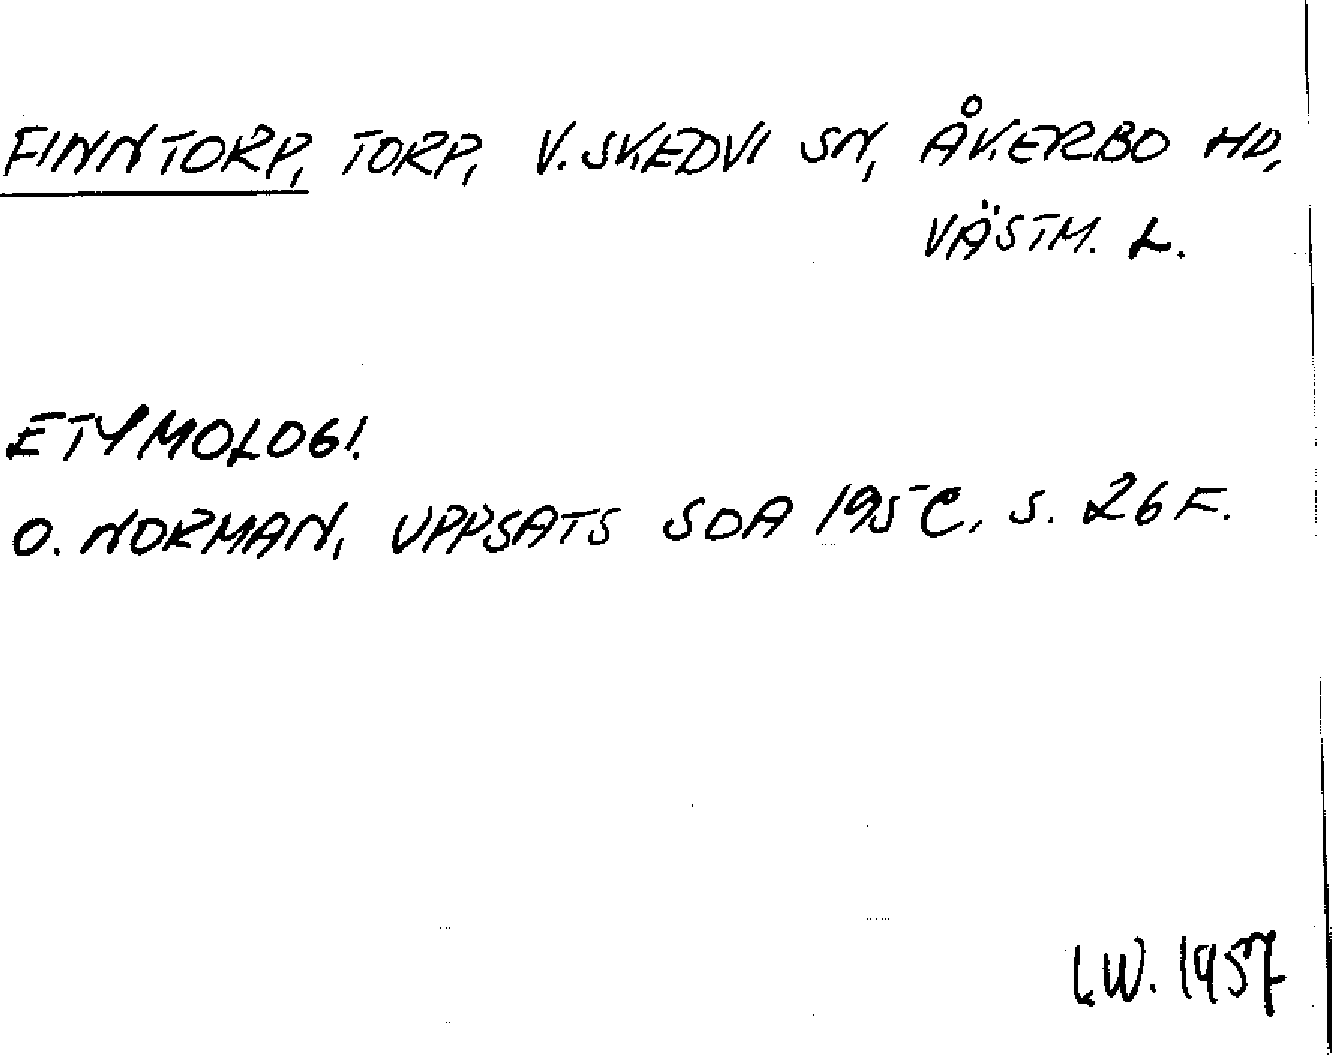 FINNTORP, TORP, V. SKEDVI SN, ÅKERBO HD,
VÄSTM. L.
ETYMOLOGI.
O. NORMAN, UPPSATS SOA 1950, S. 26 F.
L.W. 1957